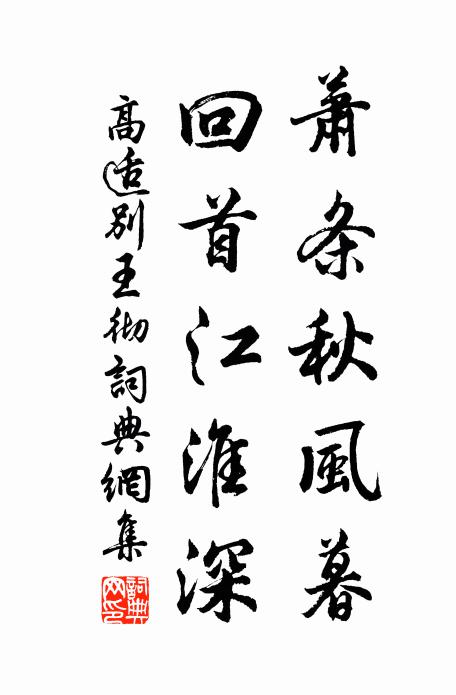 蕭条秋風暮
回首江淮深
高适別王彻詞典網集
詞典網印